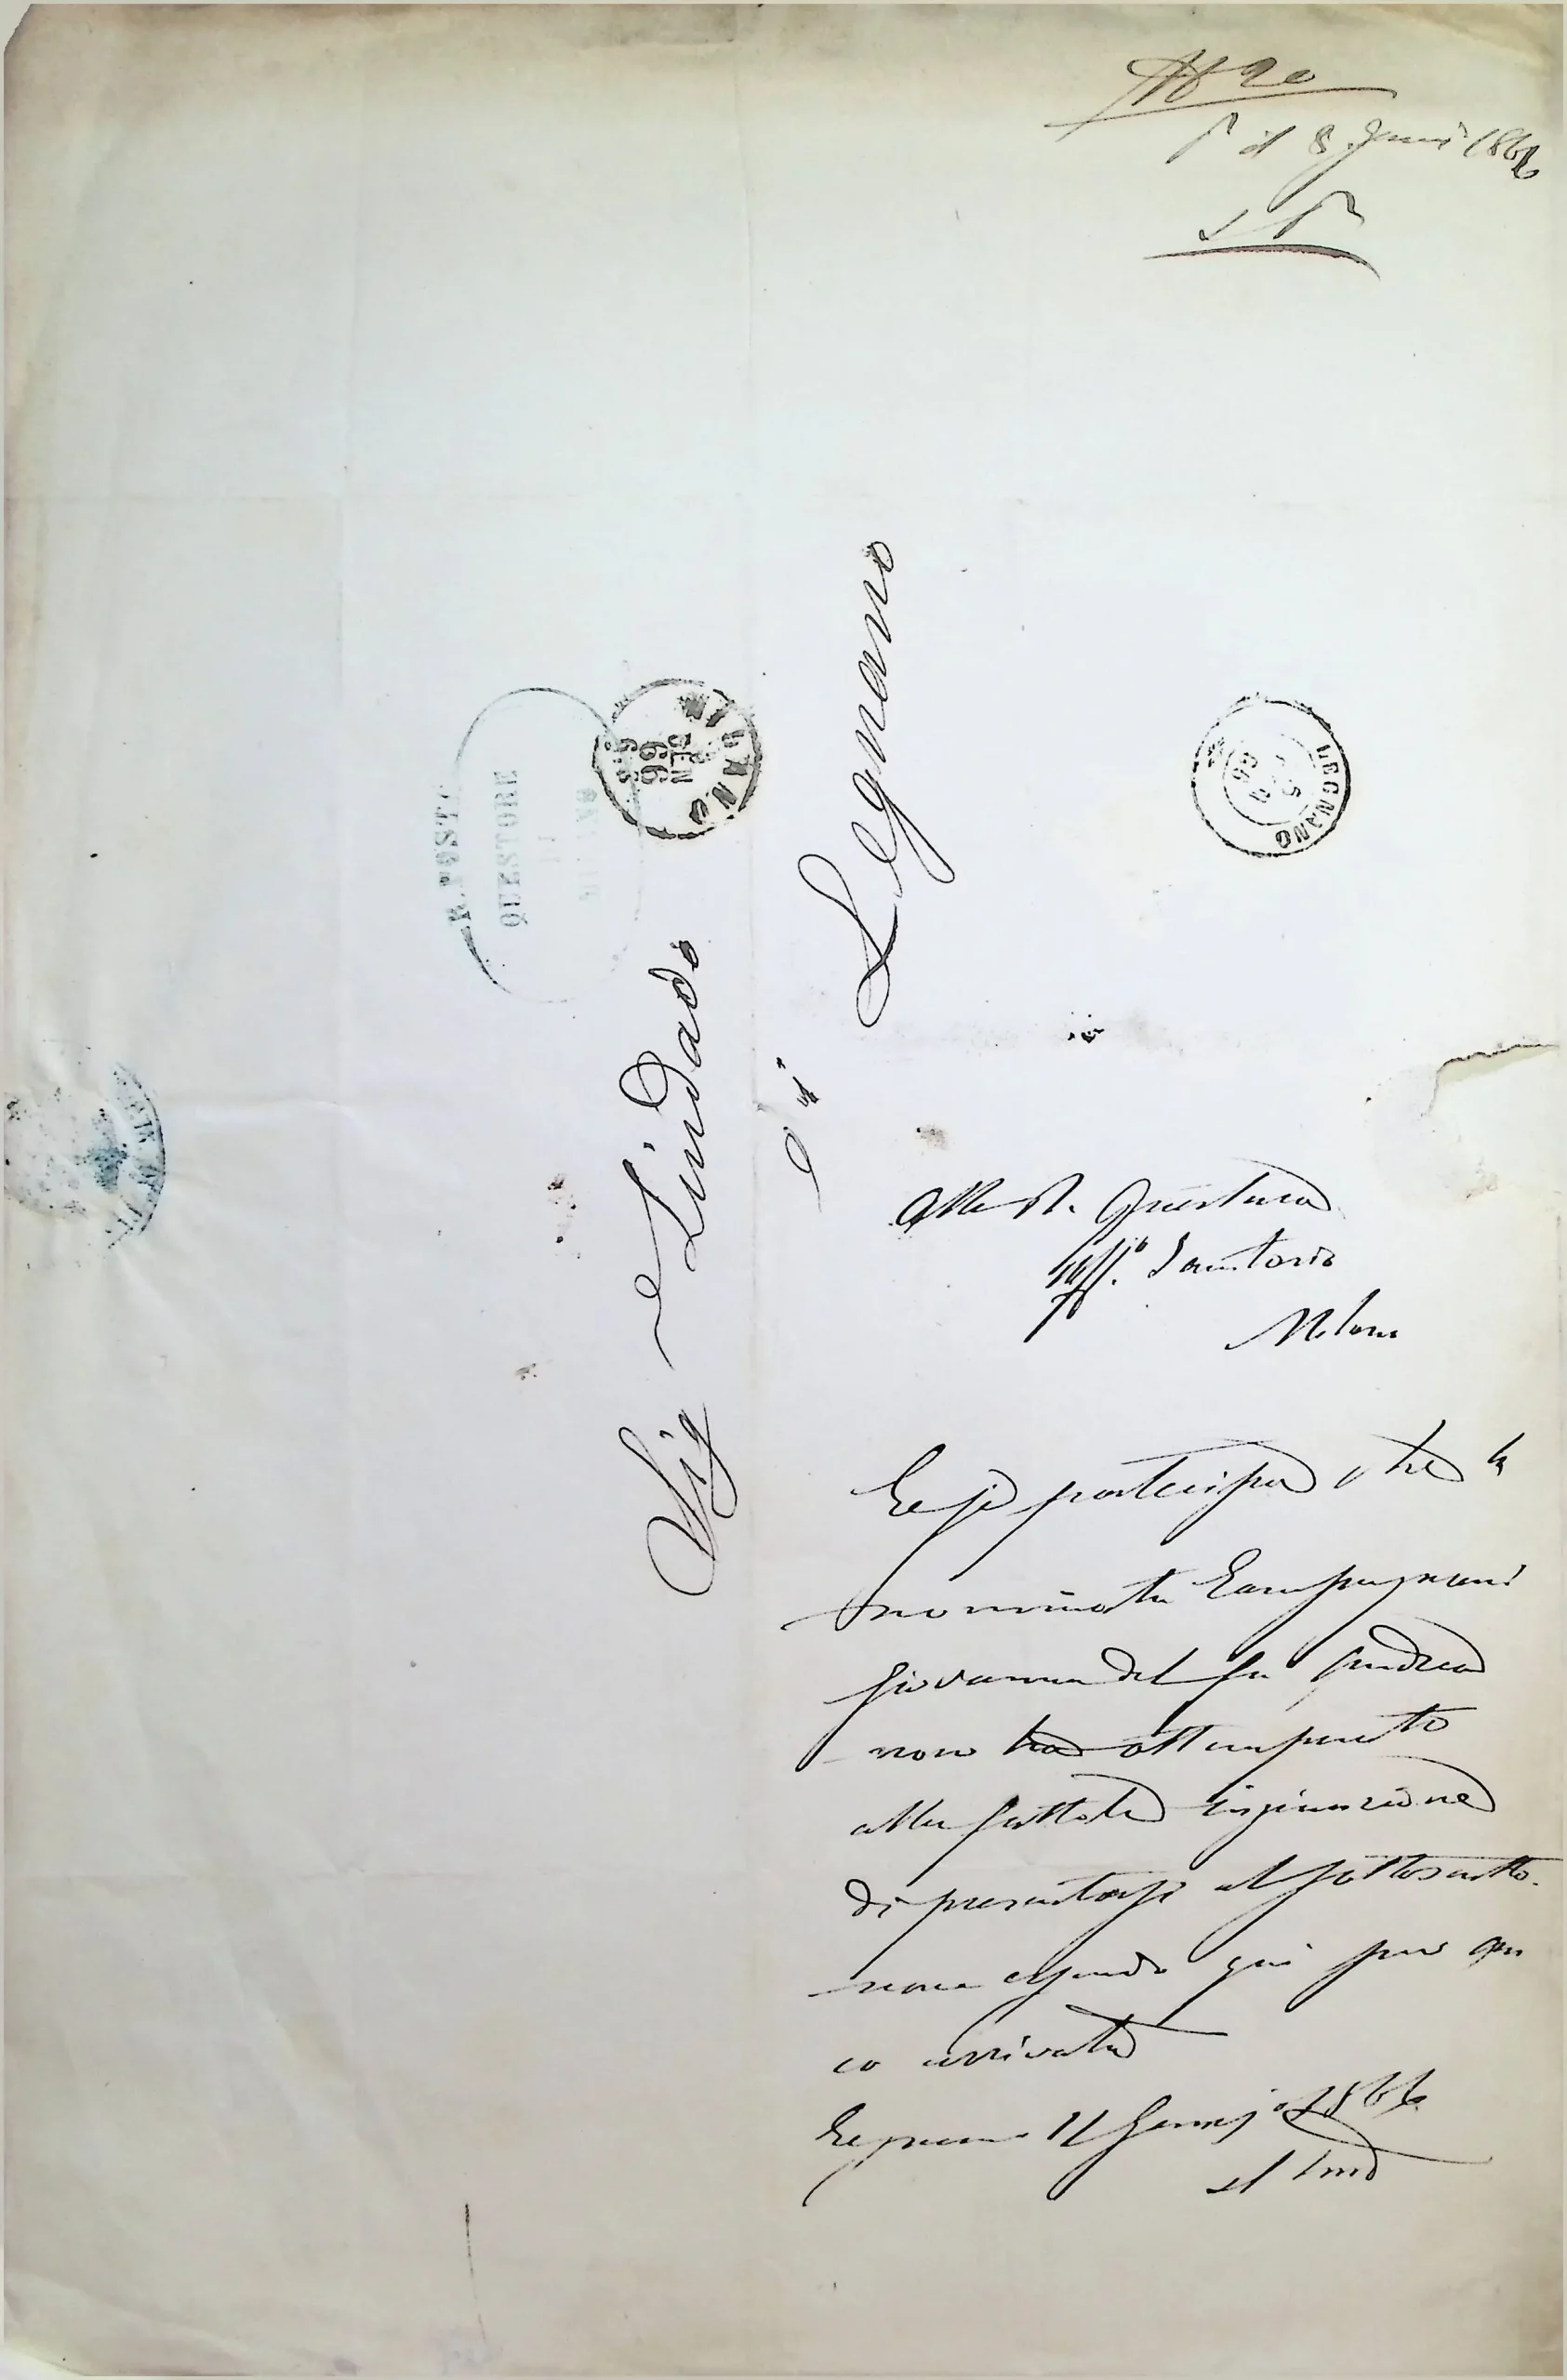 N° 20
P il 8 Genn° 1866
Sig Sindaco
di
Legnano
R. POSTE
QUESTORE
DI
MILANO
MILANO
GEN
66
LEGNANO
66
Alla R. Questura
Uff.° Sanitario
Milano
Le si partecipa che la
nominata Campagnani
Giovanna del fu Andrea
non ha ottemperato
alla fattale ingiunzione
di presentarsi al sottoscritto.
non essendo qui per an
co arrivata
Legnano 11 Genn° 1866
il Sind